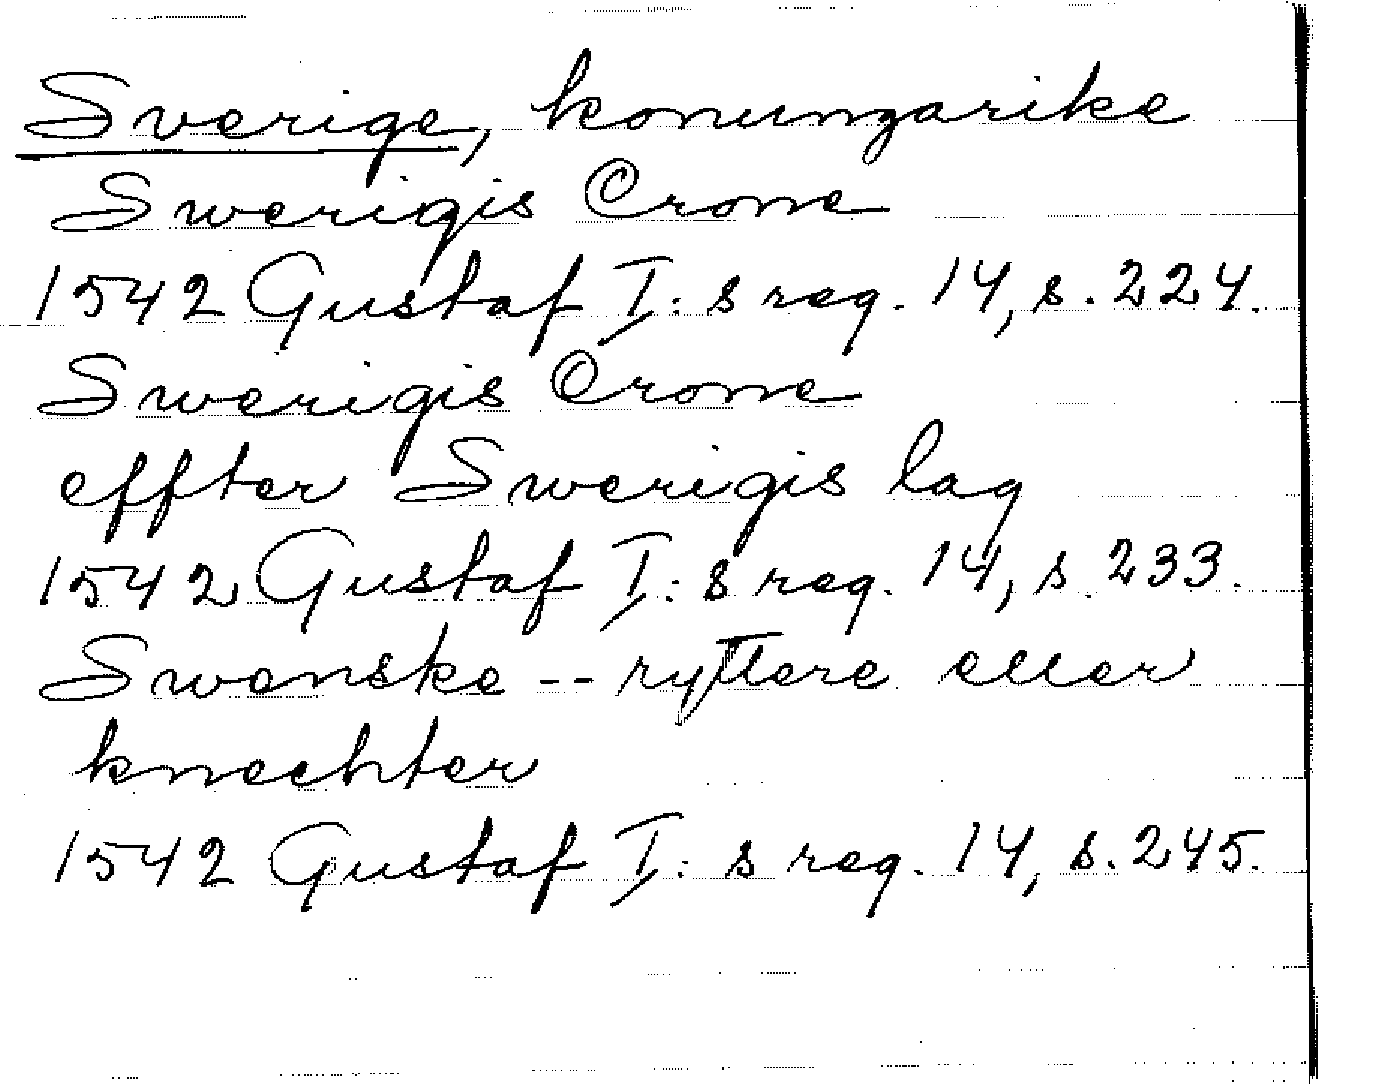 Sverige, konungarike
Swerigis Crone
1542 Gustaf I:s reg. 14, s. 224.
Swerigis Crone
effter Swerigis lag
1542 Gustaf I:s reg. 14, s. 233.
Swenske -- ryttere eller
knechter
1542 Gustaf I:s reg. 14, s. 245.